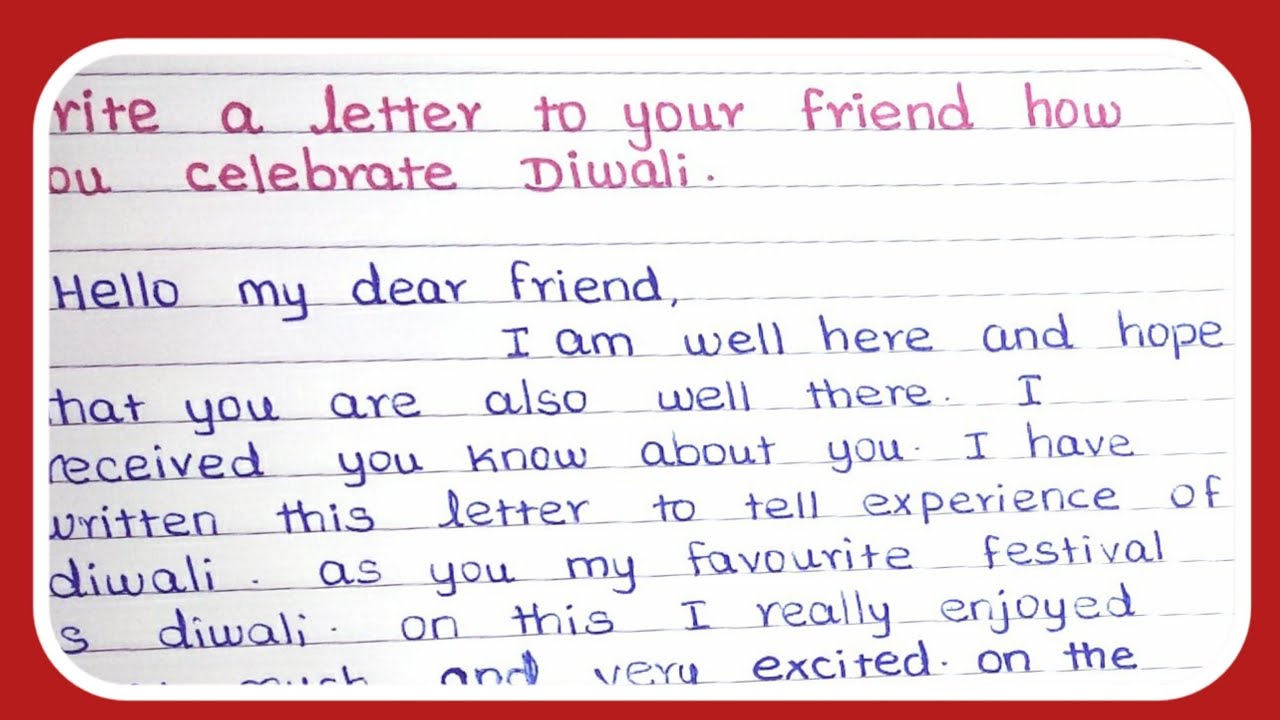 rite a letter to your friend how
ou celebrate Diwali.
Hello my dear friend,
I am well here and hope
hat you are also well there. I
received you know about you. I have
written this letter to tell experience of
diwali. as you my favourite festival
s diwali. on this I really enjoyed
much and very excited. on the